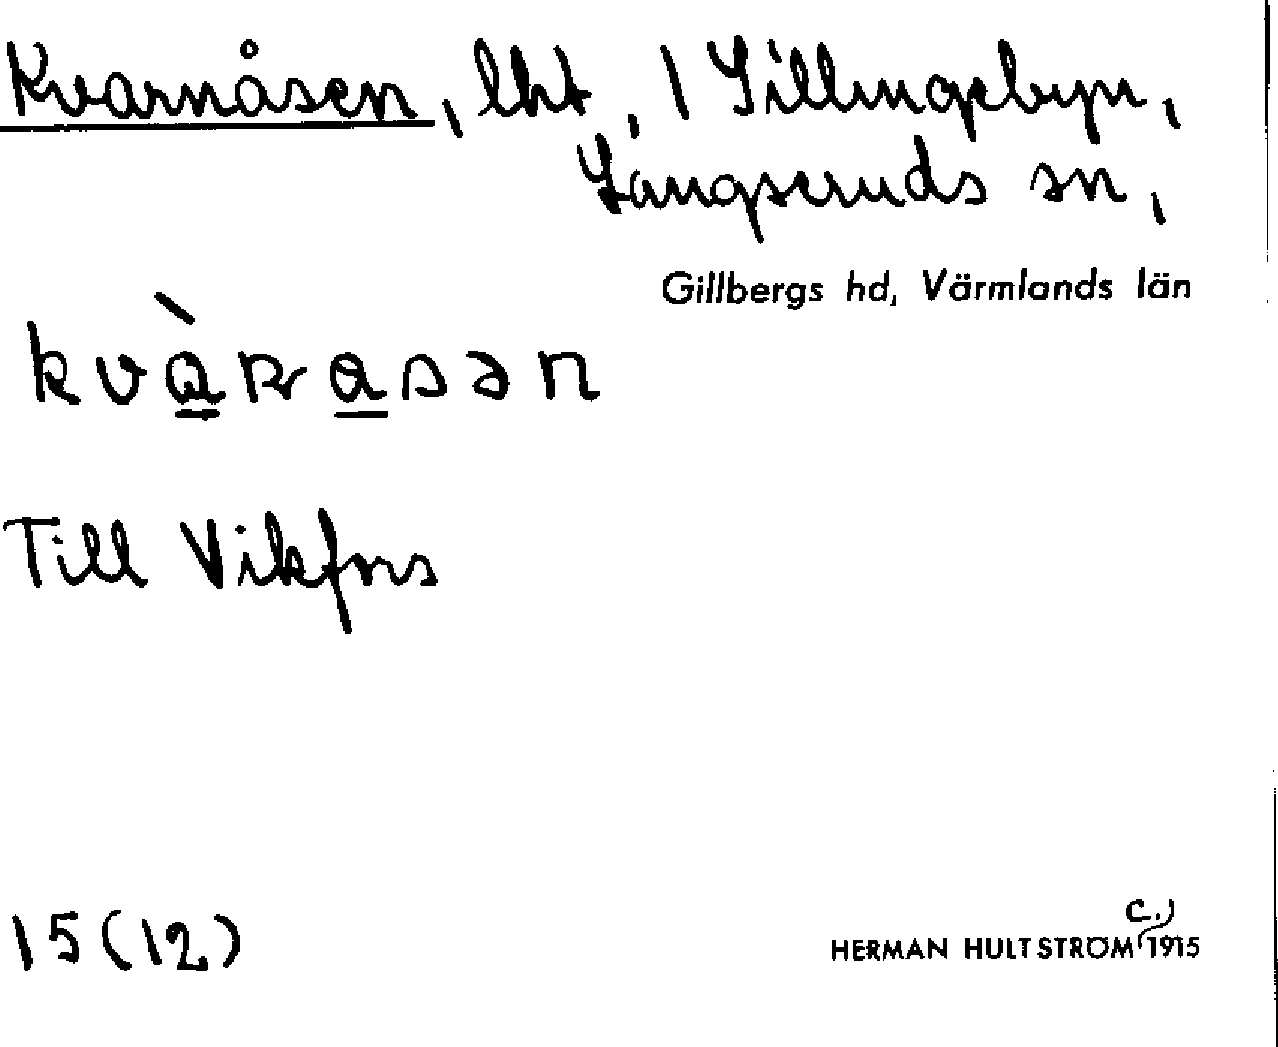 Kvarnåsen, lht, 1 Gillingebyn,
Långseruds sn,
Gillbergs hd, Värmlands län
kvàrasən
Till Vikfors
15(12)
HERMAN HULTSTRÖM c. 1915